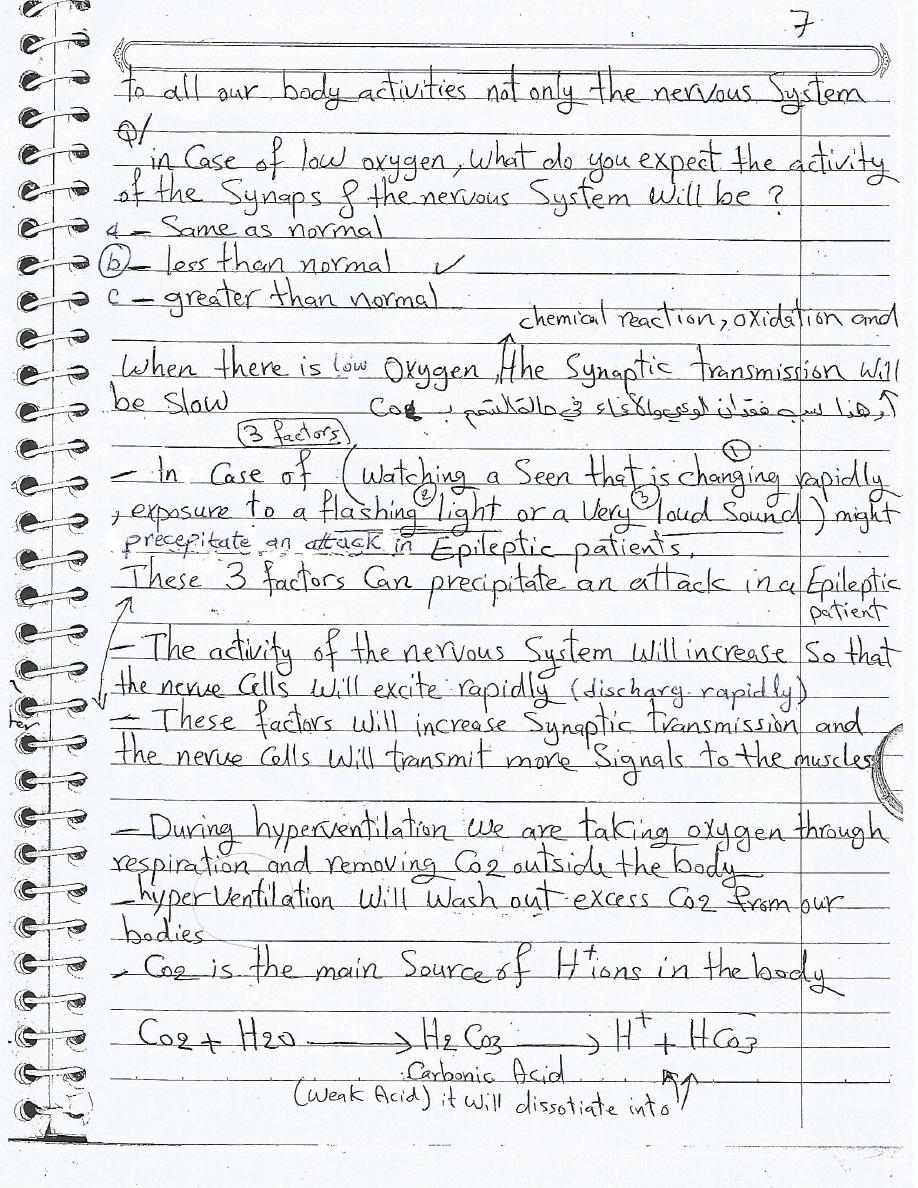 7
to all our body activities not only the nervous System
Q/
in Case of low oxygen, What do you expect the activity
of the Synaps & the nervous System will be ?
a – Same as normal
b – less than normal ✓
c – greater than normal
chemical reaction, oxidation and
When there is low Oxygen, the Synaptic transmission Will
be Slow وهذا سبب فقدان الوعي والاغماء في حالة التسمم بـ Co
3 factors
– In Case of (Watching a Seen that is changing ① rapidly
, exposure to a flashing ② light or a Very ③ loud Sound) might
precepitate an attack in Epileptic patients.
These 3 factors Can precipitate an attack in a Epileptic
patient
– The activity of the nervous System Will increase So that
the nerve Cells Will excite rapidly (discharg rapidly)
– These factors Will increase Synaptic transmission and
the nerve Cells Will transmit more Signals to the muscles
– During hyperventilation We are taking oxygen through
respiration and removing Co2 outside the body
– hyperVentilation Will Wash out excess Co2 from our
bodies
– Co2 is the main Source of H⁺ ions in the body
Co2 + H2O ⟶ H2Co3 ⟶ H⁺ + HCo3⁻
Carbonic Acid
(Weak Acid) it Will dissotiate into